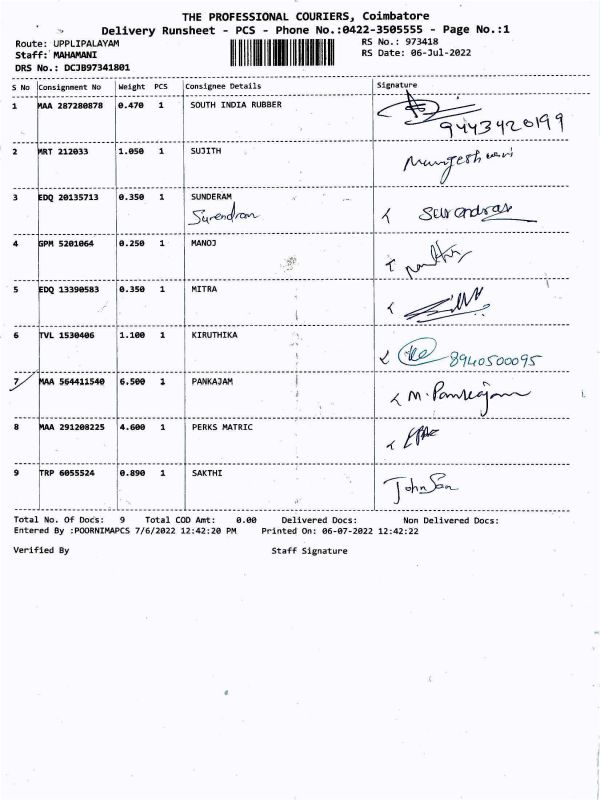 THE PROFESSIONAL COURIERS, Coimbatore
Delivery Runsheet - PCS - Phone No.:0422-3505555 - Page No.:1
Route: UPPLIPALAYAM RS No.: 973418
Staff: MAHAMANI RS Date: 06-Jul-2022
DRS No.: DCJB97341801
S No Consignment No Weight PCS Consignee Details Signature
1 MAA 287280878 0.470 1 SOUTH INDIA RUBBER
9443420199
2 MRT 212033 1.050 1 SUJITH
3 EDQ 20135713 0.350 1 SUNDERAM
Surendran Surendran
4 GPM 5201064 0.250 1 MANOJ
5 EDQ 13390583 0.350 1 MITRA
6 TVL 1530406 1.100 1 KIRUTHIKA
8940500095
7 MAA 564411540 6.500 1 PANKAJAM
M. Pankajam
8 MAA 291208225 4.600 1 PERKS MATRIC
9 TRP 6055524 0.890 1 SAKTHI
JohnSon
Total No. Of Docs: 9 Total COD Amt: 0.00 Delivered Docs: Non Delivered Docs:
Entered By :POORNIMAPCS 7/6/2022 12:42:20 PM Printed On: 06-07-2022 12:42:22
Verified By Staff Signature